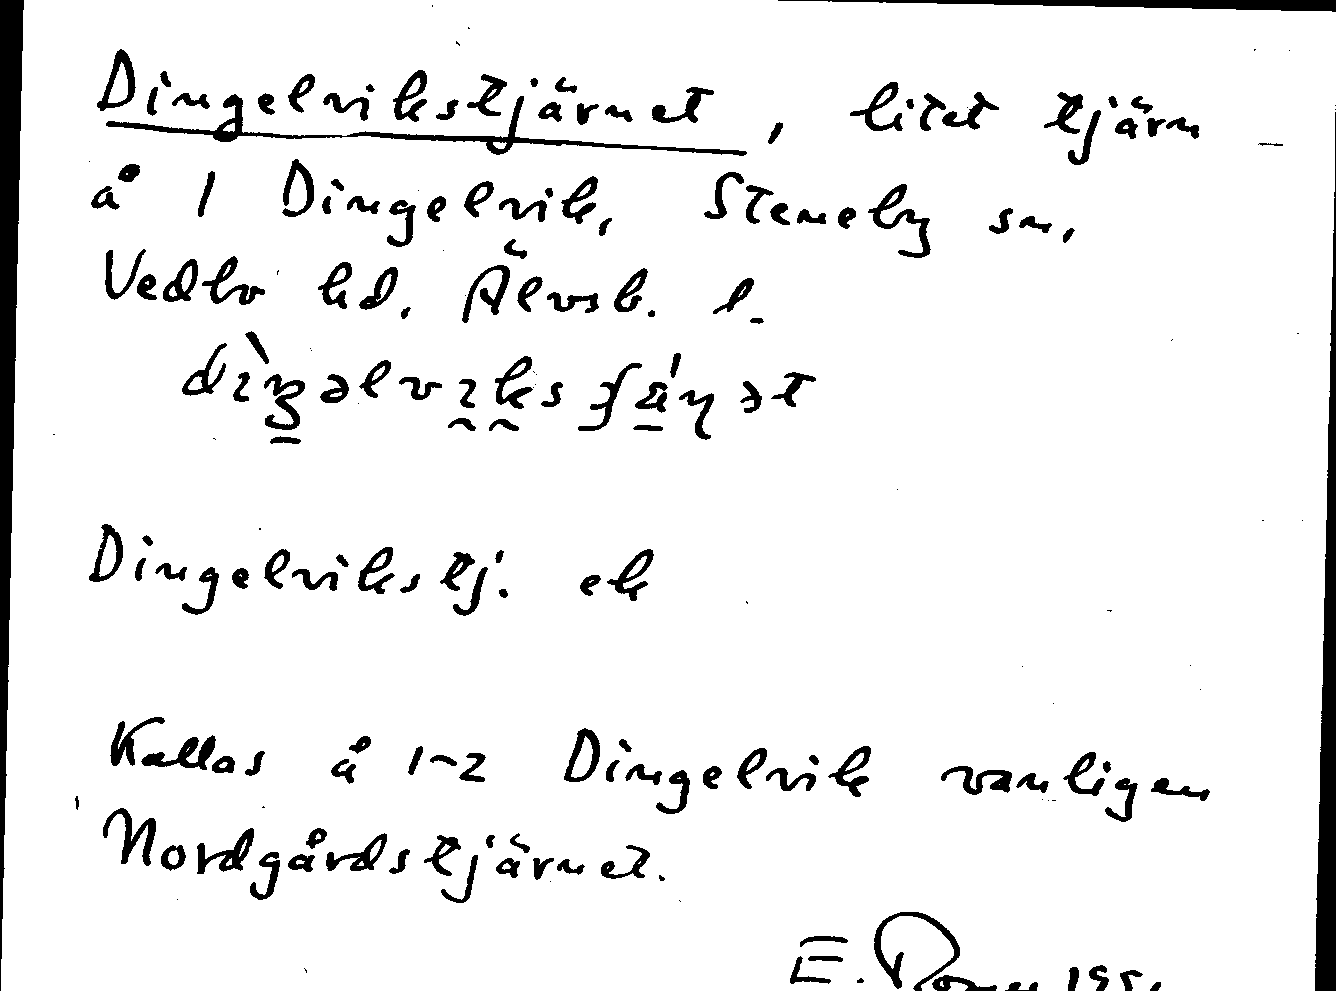 Dingelvikstjärnet, litet tjärn
å 1 Dingelvik, Steneby sn,
Vedbo hd. Älvsb. l.
Dingelvikstj. ek
Kallas å 1-2 Dingelvik vanligen
Nordgårdstjärnet.
E.